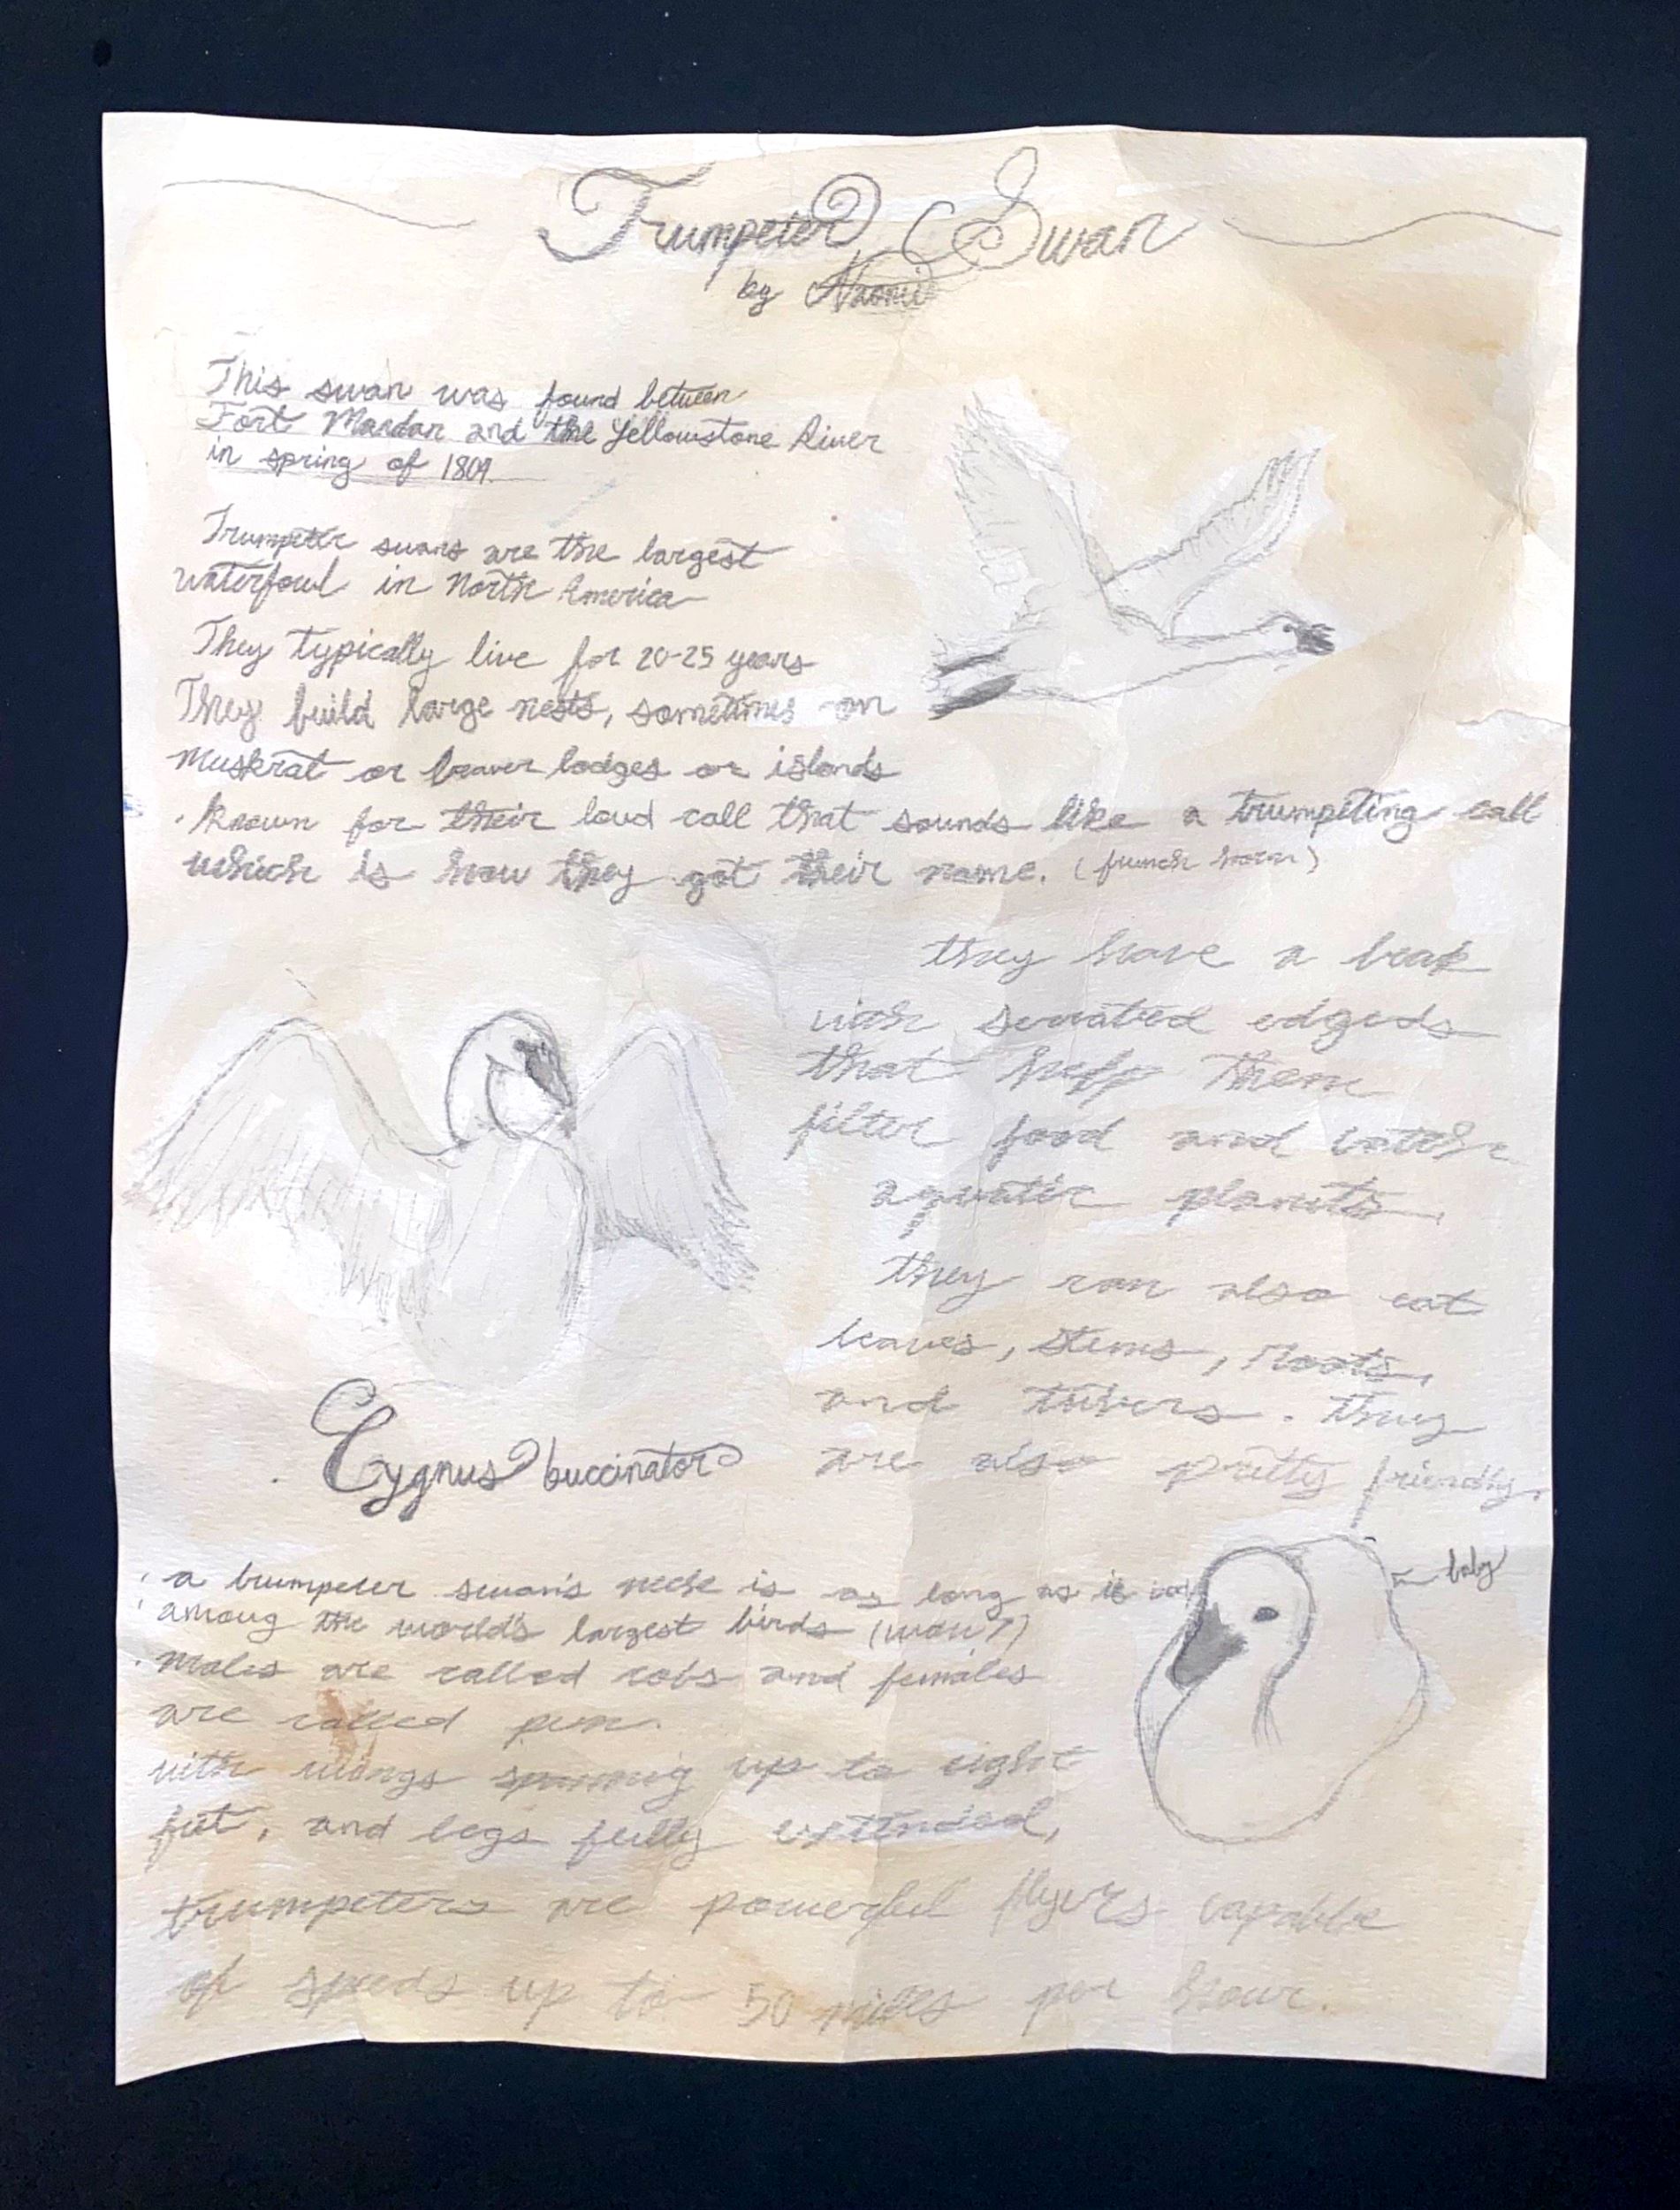 Trumpeter Swan
by Naomi
This swan was found between
Fort Mandan and the Yellowstone River
in spring of 1809.
Trumpeter swans are the largest
waterfowl in North America
They typically live for 20-25 years
They build large nests, sometimes on
muskrat or beaver lodges or islands
· Known for their loud call that sounds like a trumpeting call
which is how they got their name. (french horn)
they have a beak
with serrated edgeds
that help them
filter food and catch
aquatic plants.
they can also eat
leaves, stems, roots,
and tubers. They
are also pretty friendly.
Cygnus buccinator
· a trumpeter swan's neck is as long as it
baby
· among the world's largest birds (wow!)
· males are called cobs and females
are called pen.
with wings spanning up to eight
feet, and legs fully extended,
trumpeters are powerful flyers capable
of speeds up to 50 miles per hour.